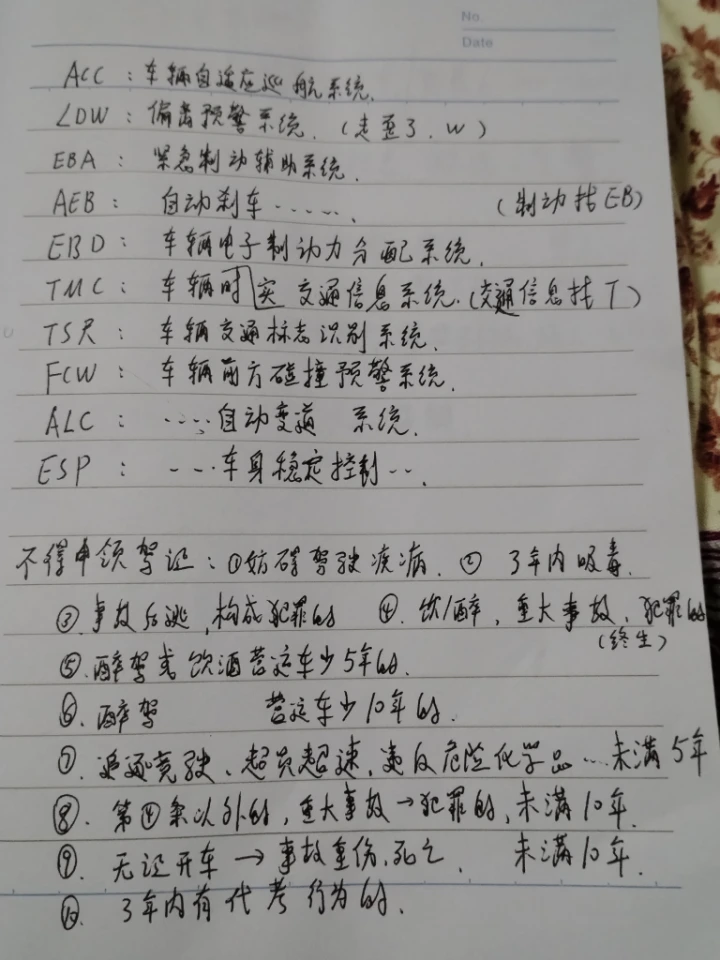 No.
Date
ACC：车辆自适应巡航系统.
LDW：偏离预警系统.（走歪了.W）
EBA：紧急制动辅助系统.
AEB：自动刹车……. （制动找EB）
EBD：车辆电子制动力分配系统.
TMC：车辆时实交通信息系统.（交通信息找T）
TSR：车辆交通标志识别系统.
FCW：车辆前方碰撞预警系统.
ALC：……自动变道 系统.
ESP：……车身稳定控制….
不得申领驾证：①妨碍驾驶疾病. ② 3年内吸毒.
③.事故后逃,构成犯罪的 ④.饮/醉,重大事故,犯罪的
（终生）
⑤.醉驾或饮酒营运车少5年的.
⑥.醉驾 营运车少10年的.
⑦.追逐竞驶、超员超速,违反危险化学品…未满5年
⑧.第④条以外的,重大事故→犯罪的,未满10年.
⑨.无证开车→事故重伤,死亡. 未满10年.
⑩.3年内有代考行为的.